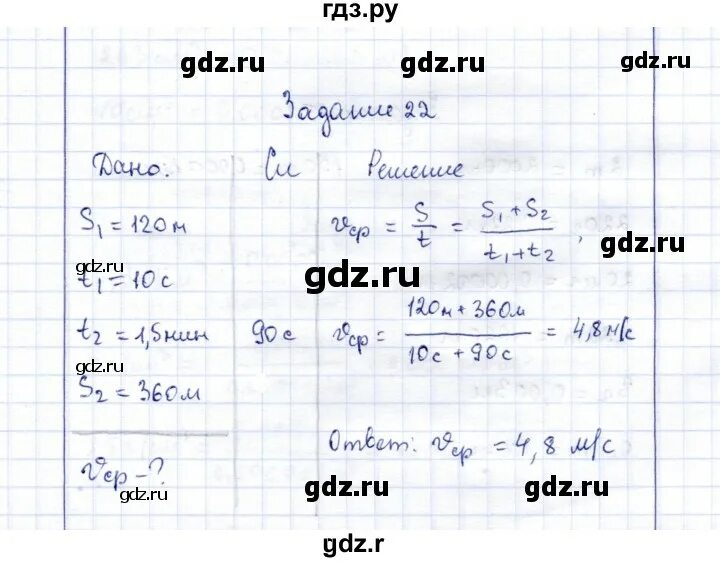 гдз.ру
gdz.ru
gdz.ru
Задание 22
Дано: Си Решение
S₁ = 120м
vср = S/t = (S₁ + S₂)/(t₁ + t₂),
gdz.ru
gdz.ru
gdz.ru
t₁ = 10с
t₂ = 1,5мин 90с vср = (120м + 360м)/(10с + 90с) = 4,8м/с
gdz.ru
gdz.ru
S₂ = 360м
Ответ: vср = 4,8 м/с
vср - ?
gdz.ru
gdz.ru
gdz.ru
gdz.r